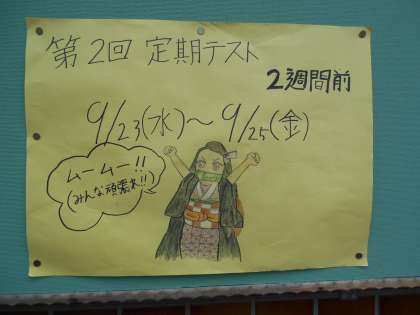 第2回 定期テスト
2週間前
9/23(水)～9/25(金)
ムームー!!
(みんな頑張れ!!)